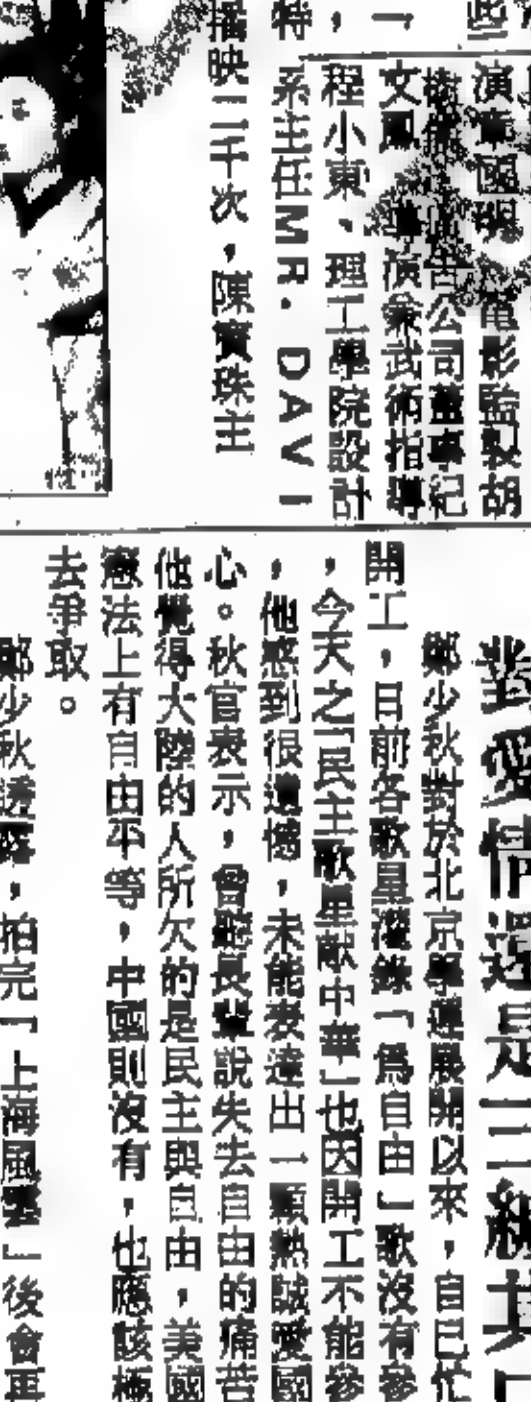 些
演章國琨、電影監製胡
公司董事紀
「
文鳳、導演兼武術指導
，
程小東、理工學院設計
特
系主任MR. DAVI
播映二千次，陳寶珠主
對愛情還是三緘其口
鄭少秋對於北京學運展開以來，自己忙
開工，日前各歌星灌錄「為自由」歌沒有參
，今天之「民主歌星獻中華」也因開工不能參
，他感到很遺憾，未能表達出一顆熱誠愛國
心。秋官表示，曾聽長輩說失去自由的痛苦
他覺得大陸的人所欠的是民主與自由，美國
憲法上有自由平等，中國則沒有，也應該極
去爭取。
鄭少秋透露，拍完「上海風雲」後會再